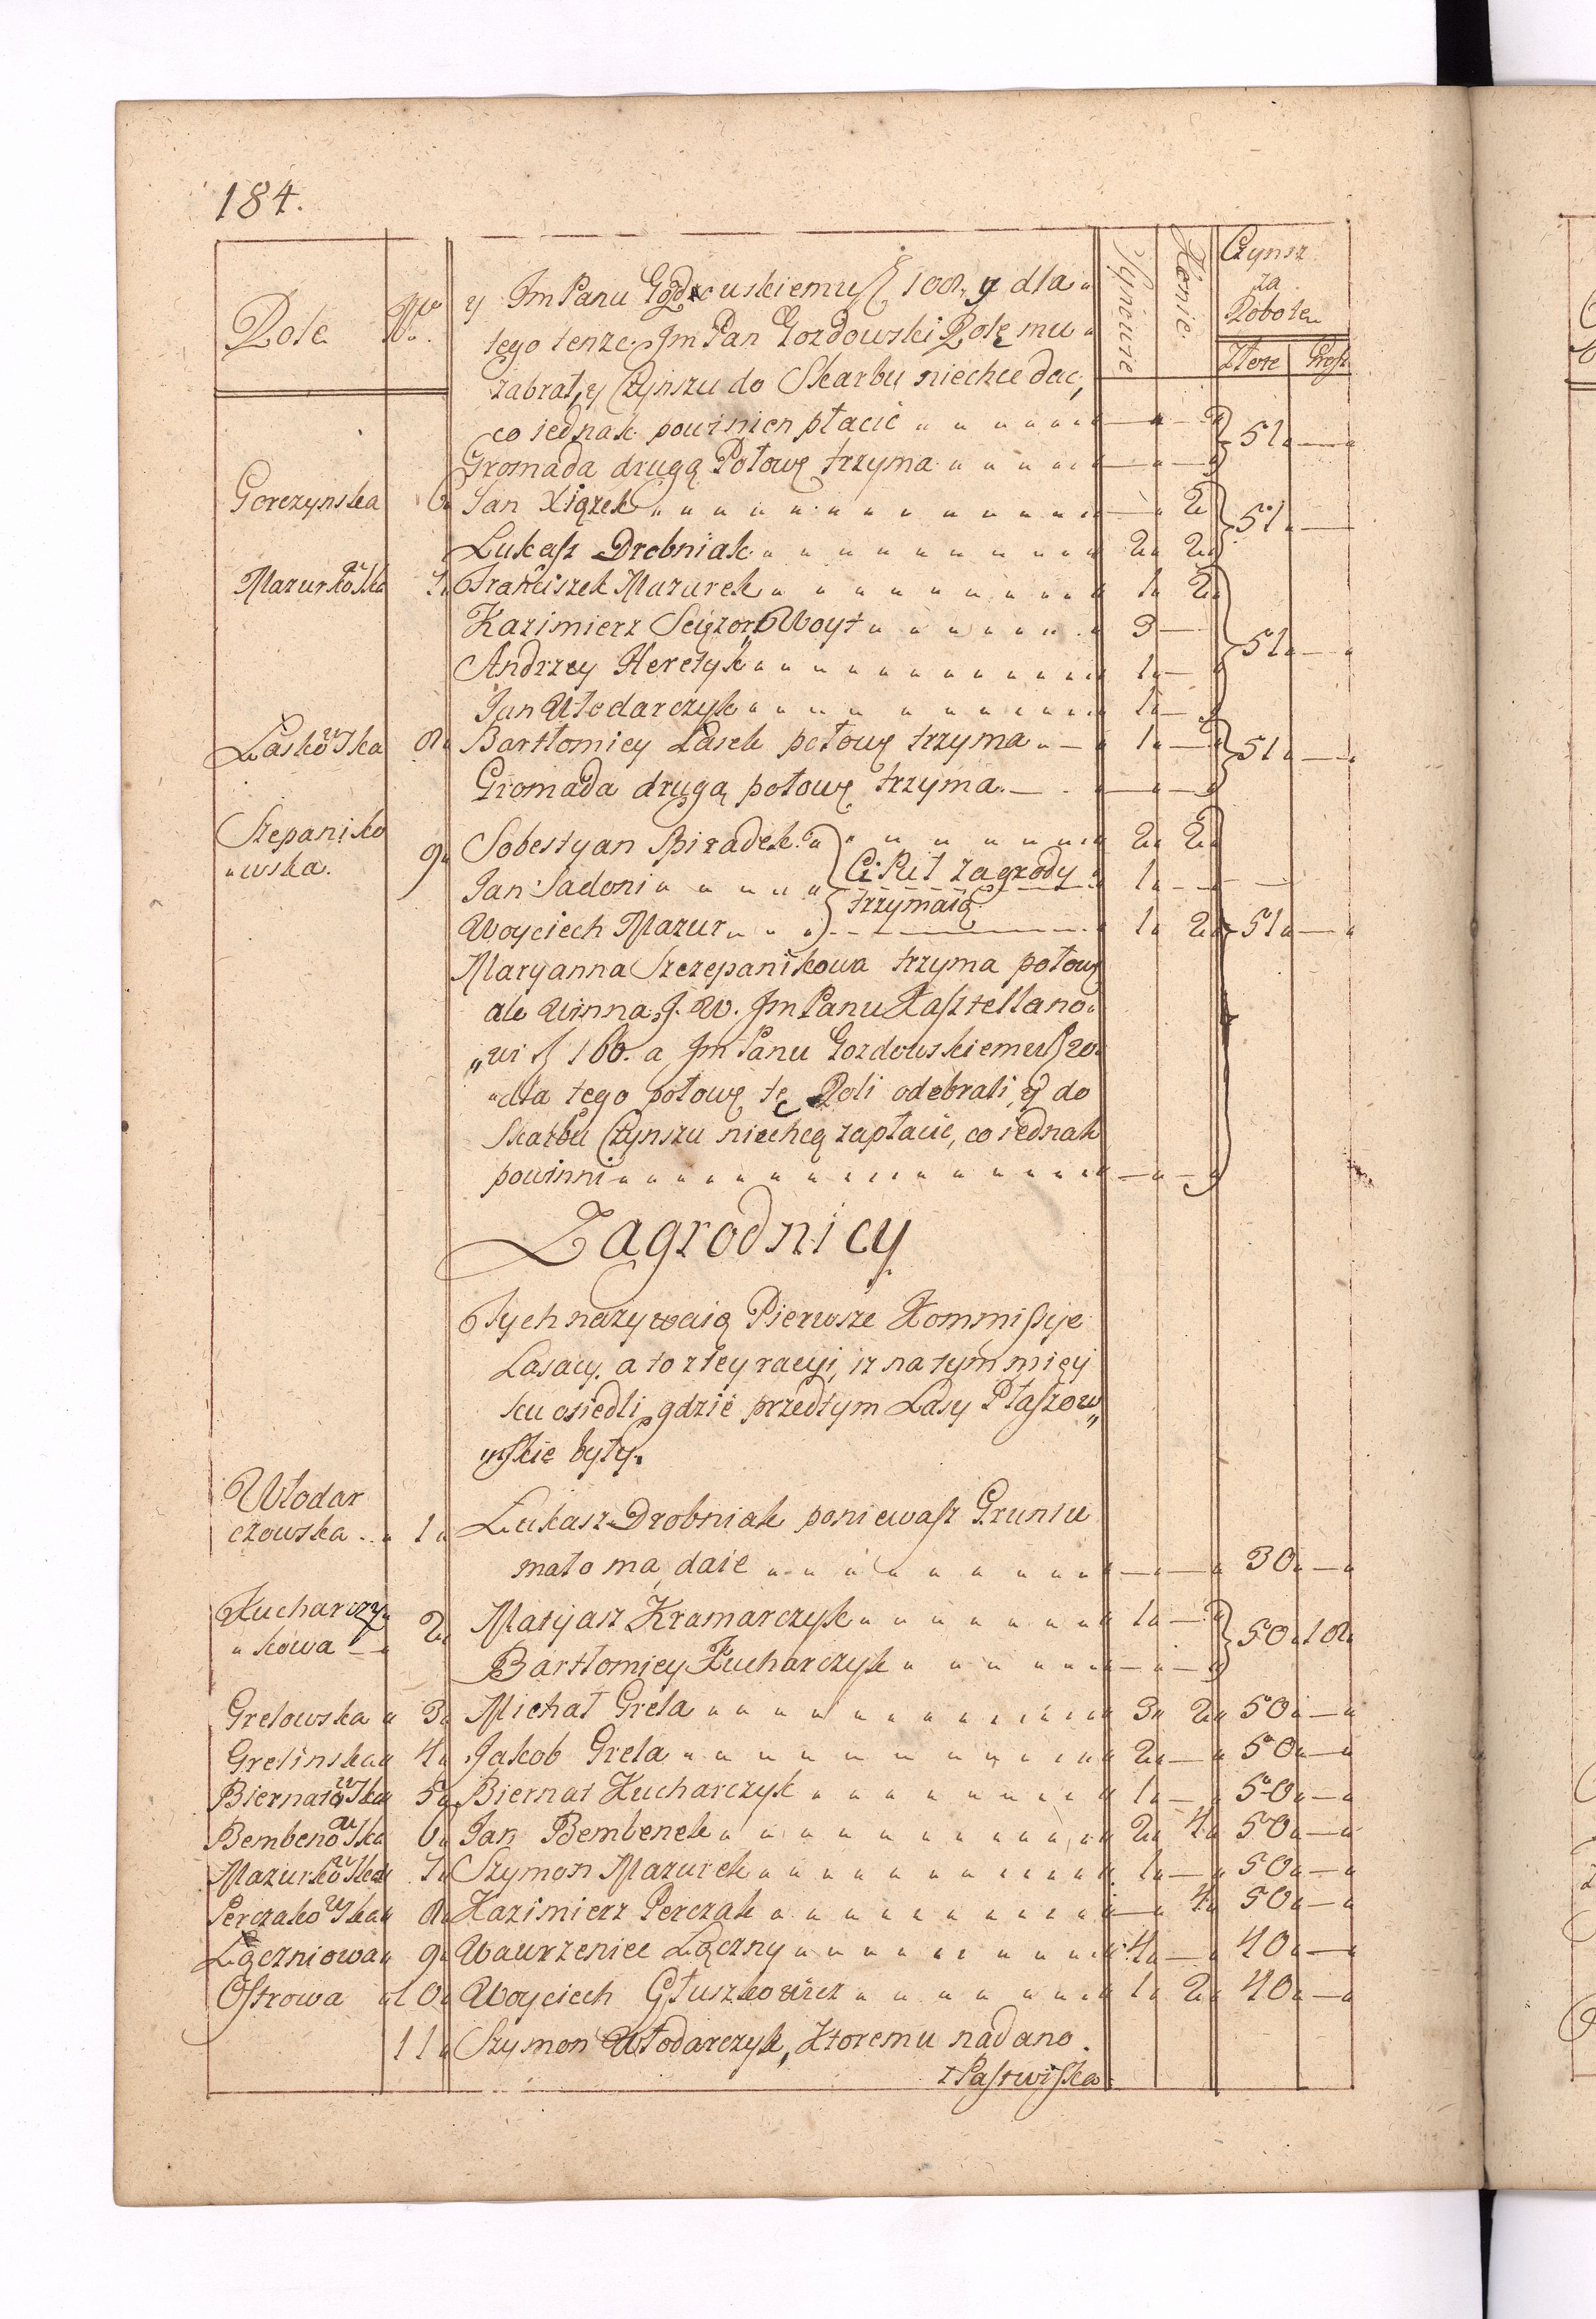 184.
Role No. Synowie Konie Czynsz
za
Robote
Złote Grosz
y Jm Panu Gozdowskiemu f 108, y dla
tego tenze Jm Pan Gozdowski Rolę mu
zabrał, y Czynszu do Skarbu niechce dac,
co iednak powinien płacić 51
Gromada drugą Połowę trzyma
Gorczynska 6 Jan Xiązek 2 51
Lukasz Drobniak 2 2
Mazurkowska 7 Franciszek Mazurek 1 2
Kazimierz Woyt 3
Andrzey Heretyk 1 51
Jan Włodarczyk 1
Laskowska 8 Bartłomiey Lasek połowę trzyma 1 51
Gromada drugą połowę trzyma
Szepaniko
wska. 9 Sobestyan Biradek 2 2
Jan Sadoni Ci Pułzagrody 1
trzymaią
Woyciech Mazur 1 2 51
Maryanna Szczepanikowa trzyma połowę
ale winna J. W. Jm Panu Kasztellano
„wi f 160. a Jm Panu Gozdowskiemu f 20
dla tego połowę tę Roli odebrali, y do
Skarbu Czynszu niechcą zapłacić, co iednak
powinni
Zagrodnicy
Tych nazywaią Pierwsze Kommissye
Lasacy. a to z tey racyi, iz na tym miey
scu osiedli, gdzie przedtym Lasy Płaszow„
wskie były.
Włodar
czowska 1 Lukasz Drobniak poniewasz Gruntu
mało ma, daie 30
Kucharczy
kowa 2 Matyasz Kramarczyk 1 50 18
Bartłomiey Kucharczyk
Grelowska 3 Michał Grela 3 2 50
Grelinska 4 Jakob Grela 2 50
Biernatowska 5 Biernat Kucharczyk 1 50
Bembenowska 6 Jan Bembenek 2 4 50
Mazurkowska 7 Szymon Mazurek 1 50
Perczakowska 8 Kazimierz Perczak 4 50
Lączniowa 9 Wawrzeniec Lączny 4 40
Ostrowa 10 Woyciech Głuszkowicz 1 2 40
11 Szymon Włodarczyk, Ktoremu nadano
z Pastwiska